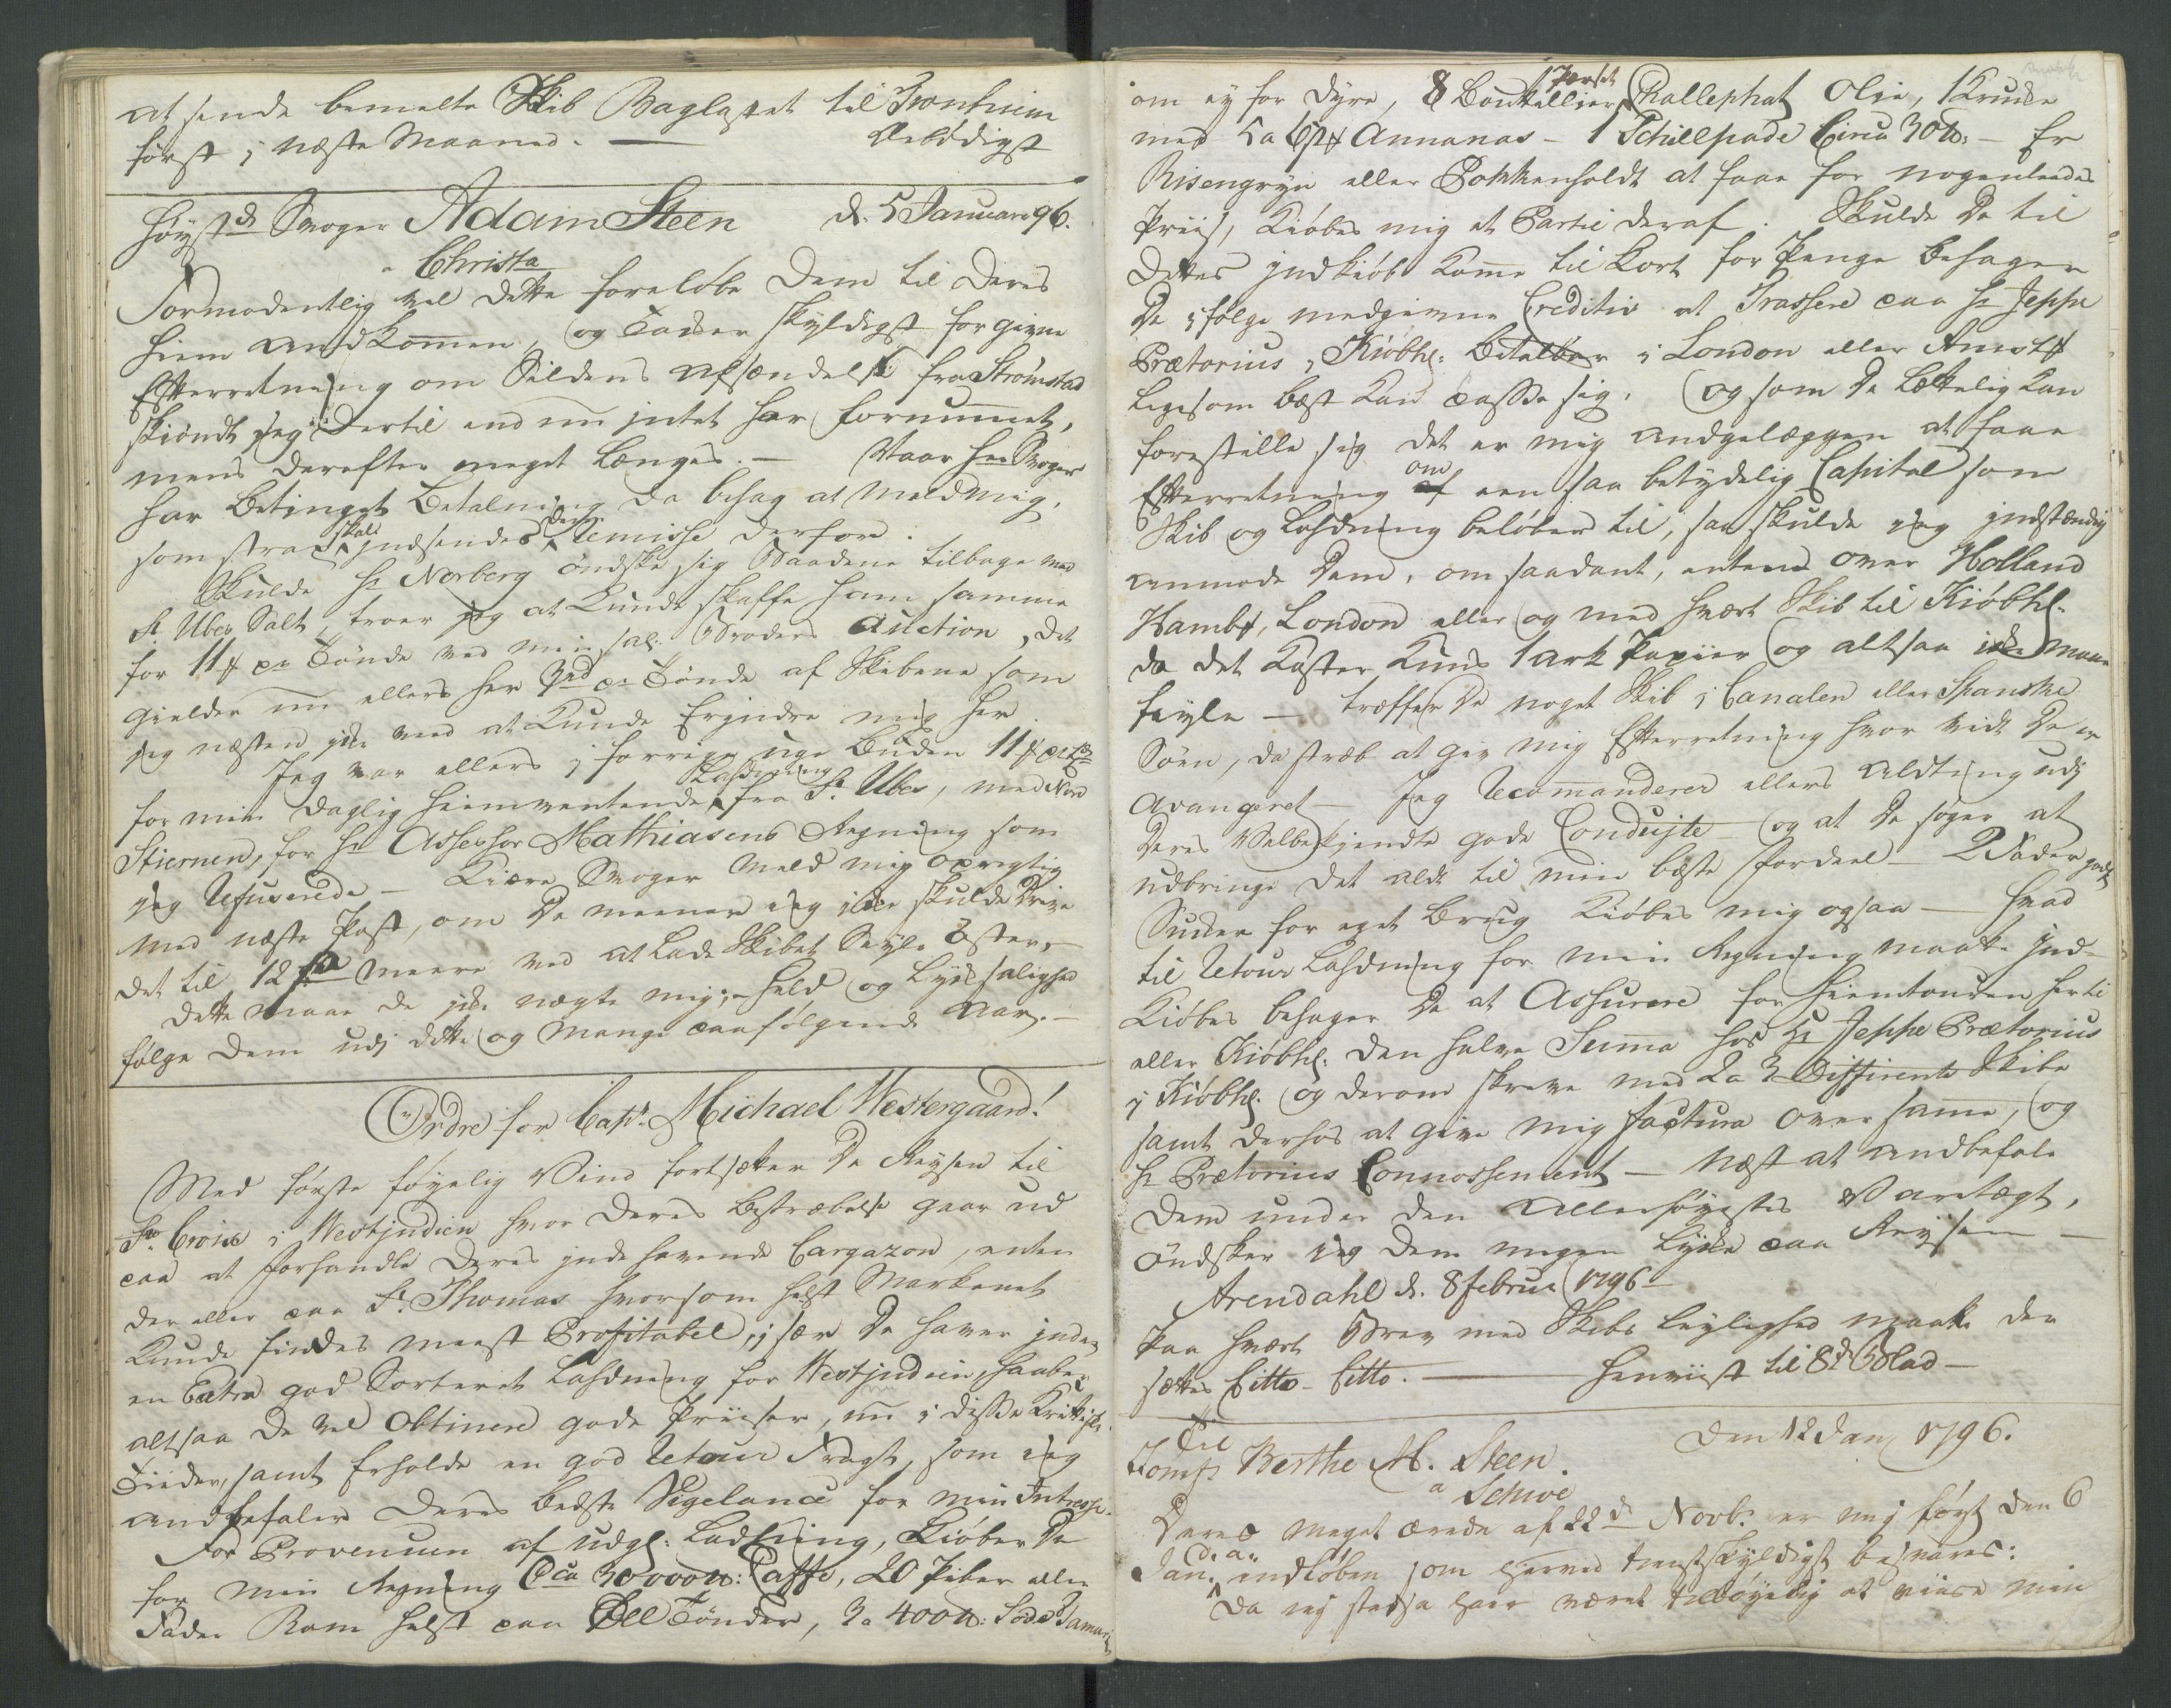 at sende bemelte Skib Baglastet til Tronhiem
først i næste Maaned. — Ærbødigst
Høyst Svoger Adam Steen d. 5 Januari 96.
a Christa
Formodentlig vel dette foreløbe Dem til Deres
Hiem andkommen, og Takker skyldigst for givne
Efterretning om Sildens afsændelse fra Strømstad
skiøndt jeg dertil endnu intet har fornummet,
mens derefter meget længes. — Naar Hr Svoger
har betinget Betalning da behag at meld mig,
som strax skal indsendes Dem Remisse derfore.
Skulde Hr Norberg øndske sig Baadene tilbage med
St Ubes Salt, troer jeg at kunde skaffe ham samme
for 11 ß pr Tønde ved min sal: Broders Auction, det
gielder nu ellers her 3rd pr Tønde af Skibene som
jeg næsten ikke veed at kunde Erindre mig her
Jeg var ellers i forrige uge buden 11 ß pr
for min daglig hiemventende Ladning fra St Ubes, med Nord
Stiernen, for Hr Assessor Mathiasens Regning som
jeg Refuserede — Kiære Svoger meld mig oprigtig
med næste Post, om De meener jeg ikke skulde Drive
det til 12 meere ved at lade Skibet Seyle Øster,
dette maae de ikke nægte mig; - Held og Lyksalighed
følge Dem udi dette og mange paafølgende Aar. —
Ordre for Capt. Michael Westergaard!
Med første føyelig Vind fortsætter De Reysen til
St. Croix i Westjndien hvor Deres bestræbelse gaar ud
paa at forhandle Deres indehavende Cargazon, enten
der eller paa St. Thomas hvorsom helst Markenet
kunde findes meest Profitabel, især De haver inde
en Extra god Sorteret Ladning for Westjndien, haaber
altsaa De vel obtinere gode Priiser, nu i disse Kritiske
Tiider, samt Erholde en god Retour Fragt, som jeg
andbefaler Deres bedste Vigelance for min Intresse.
For Provenuen af udg: Ladning, Kiøber De
for min Regning Cca 30000 ℔: Caffe, 20 Piber eller
Fade Rom helst paa Øll Tønder, 3 a 400 ℔: Sode Tamarin
om ey for dyre, 8 Bouteillier Perset Challephat Olie, 1 Krukke
med 5 a 6 Annanas - 1 Schillpade Circa 30 ℔: — Er
Risengryn eller Pokkenholdt at faae for nogenleedes
Priis, Kiøbes mig et Partie deraf. Skulde De til
dettes indkiøb komme til kort for Penge behager
De ifølge medgivne Creditiv at Trassere paa Hr Jeppe
Prætorius, Kiøbh: betalbar i London eller Amst
ligesom bæst kand passe sig. Og som De lættelig kan
forestille sig det er mig andgelæggen at faae
Efterretning om een saa betydelig Capital som
Skib og Ladning beløber til, saa skulde jeg indstændig
anmode Dem, om saadant, enten over Holland
Hamb, London eller og med hvært Skib til Kiøbh.
da det koster kuns 1 ark Papiir og altsaa ikke maae
feyle — træffer De noget Skib i Canalen eller Spanske
Søen, da stræb at giv mig Efterretning hvor vidt De er
avanceret — Jeg Recommanderer ellers aldting udi
Deres Velbekjendte gode Conduite — og at De søger at
udbringe det aldt til min bæste fordeel — 2 Fade godt
Sukker for eget brug Kiøbes mig ogsaa — hvad
til Retour Ladning for min Regning maatte ind-
Kiøbes behager De at Assurere for Hiemtouren her til
eller Kiøbh: den halve Summa hos Hr Jeppe Prætorius
i Kiøbh: og derom skrive med 2 a 3 Diffirente Skibe
samt derhos at give mig factura over samme, og
Hr Prætorius Connossement — Næst at andbefale
Dem under den allerhøyestes Varetægt,
Øndsker jeg Dem megen Lykke paa Reysen —
Arendahl d. 8 Februa 1796 —
Paa hvært Brev med Skibs leylighed maatte der
sættes Citto - Citto. — Henviist til 8de Blad —
Til
Jomfr Berthe M. Steen. Den 12 Jan 1796.
a Schive
Deres meget ærede af 22d Novb: er mig først den 6
Jan. d. a. indløben som herved tienstskyldigst besvares:
Da jeg stedse har været tilbøyelig at viise min